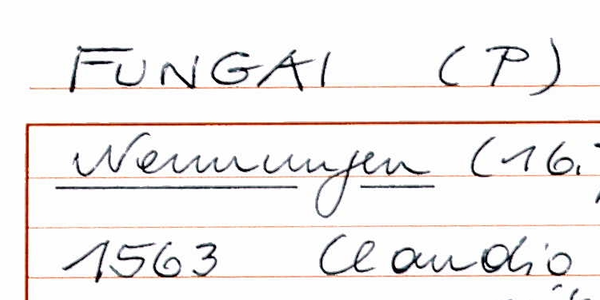 FUNGAI (P)
Nennungen (16.
1563 Claudio